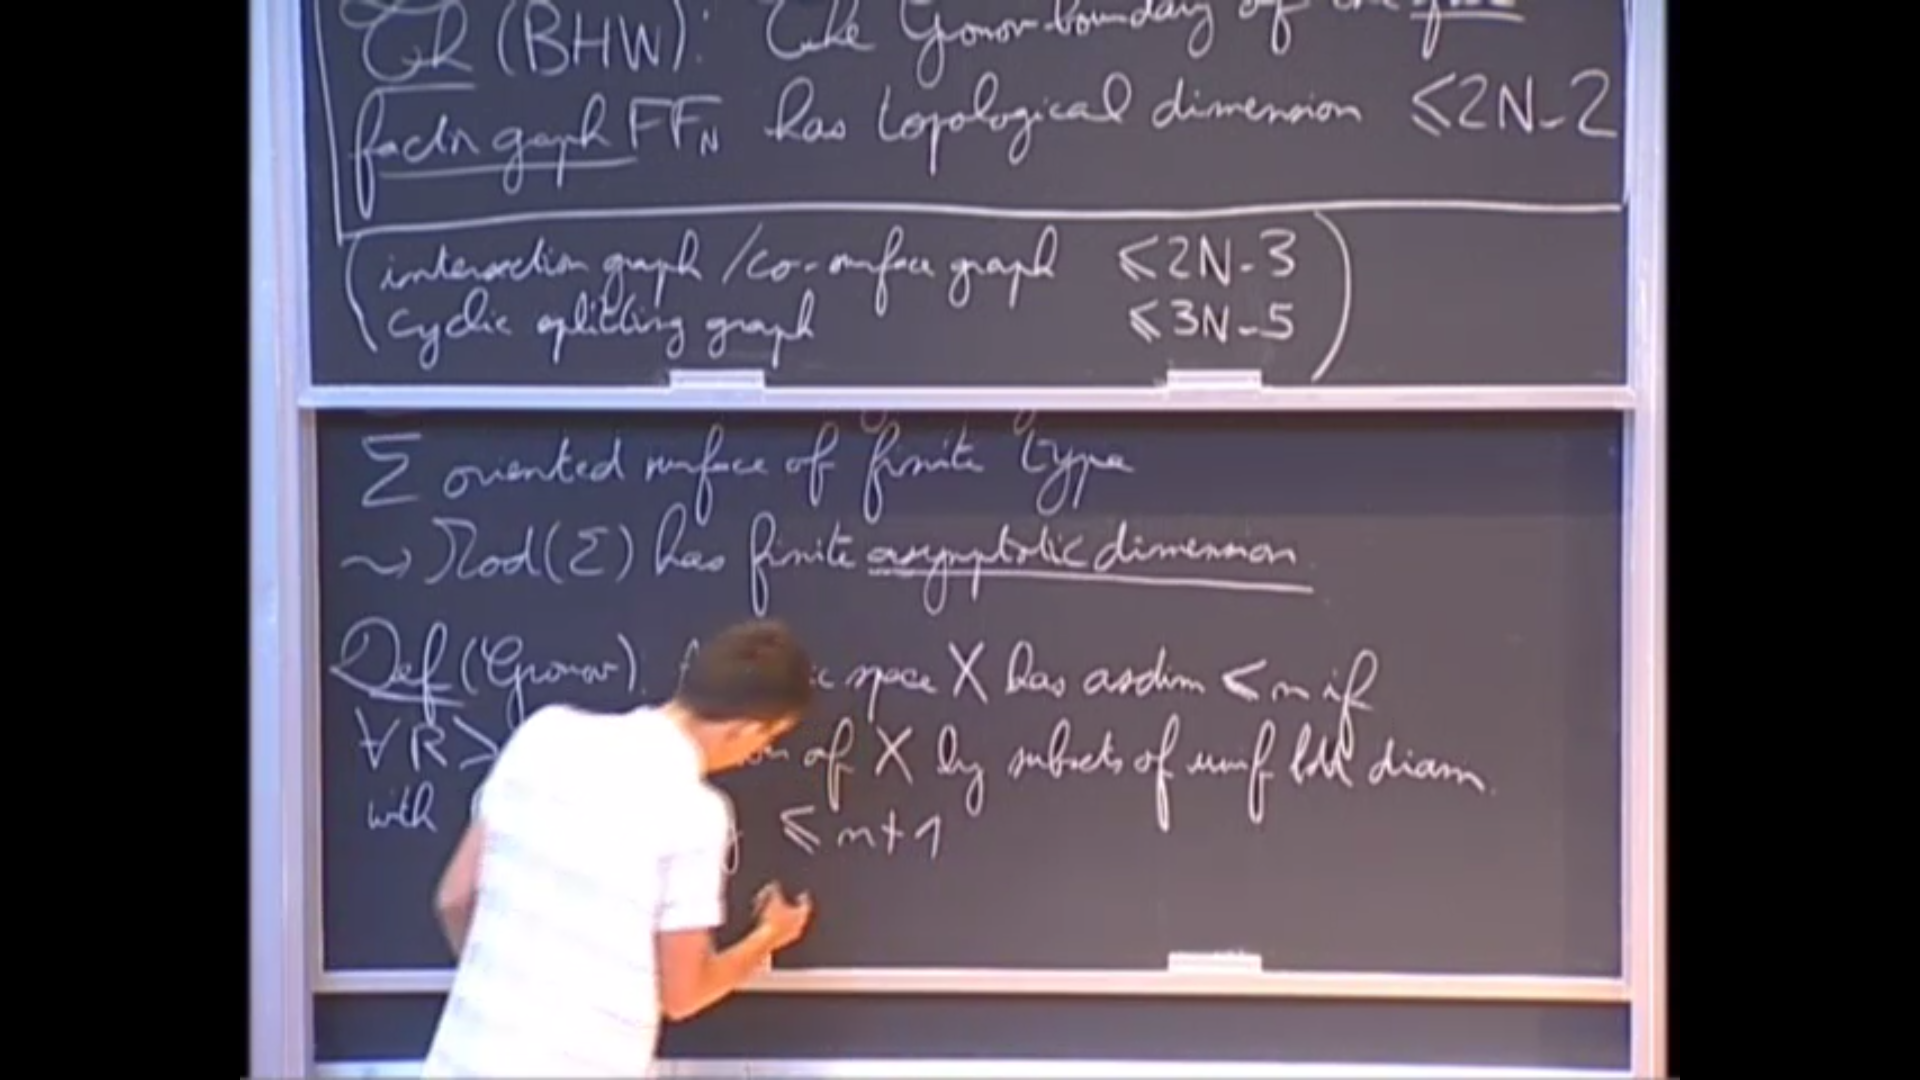 Th (BHW): The Gromov boundary of the free
factor graph FF_N has topological dimension ⩽2N-2
(intersection graph / co-surface graph ⩽2N-3
cyclic splitting graph ⩽3N-5)
Σ oriented surface of finite type
⤳ Mod(Σ) has finite asymptotic dimension.
Def (Gromov). space X has asdim ⩽ n if
∀R> of X by subsets of unif bdd diam.
with ⩽ n+1